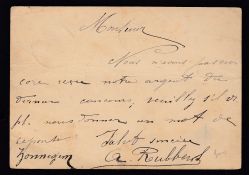 Monsieur
Nous n'avons pas en
core reçu notre argent du
dernier concours, veuillez s'il v.
pl. nous donner un mot de
réponse Salut sincère
A. Rubbens